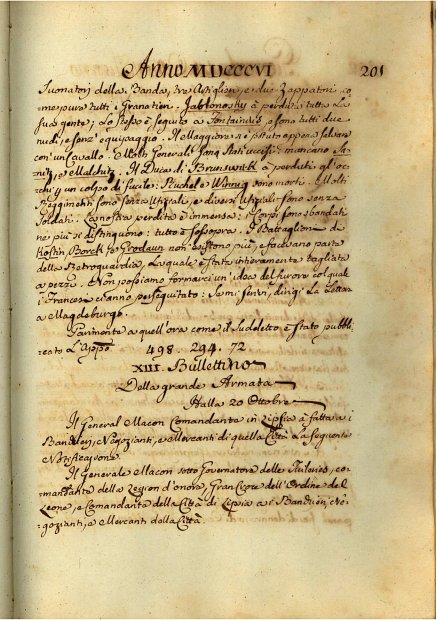 Anno MDCCCVI 201
Suonatori della Banda, tre Artiglieri, e due Zappatori, co
me pure tutti i Granatieri. Jablonosky à perduta tutta la
sua gente; Lo stesso è seguito a e sono tutti due
nudi, e senz' equipaggio. Il Maggiore si è potuto appena salvare
con un Cavallo. Molti Generali sono stati uccisi: mancano
e Malchitz. Il Duca di Brunswick à perduti gl' oc-
chj p un colpo di fucile. e sono morti. Molti
Reggimenti sono senza Ufiziali, e diversi Ufiziali sono senza
Soldati. La nostra perdita è immensa: i Corpi sono sbandati
ne piu si distinguono: tutto è sossopra. I Battaglioni di
Borck non esistono più, e facevano parte
della Retroguardia, la quale è stata intieramente tagliata
a pezzi. Non possiamo formarci un' idea del furore col quale
i Francesi ci anno perseguitato: Se mi scrivi, dirigi la Lettera
a Magdeburgo.
Parimente a quell' ora come il Sudeletto è stato pubbli-
cato L' appo.
498. 294. 72
XIII. Bullettino
Della grande Armata
Halla 20 Ottobre
Il General Macon Comandante in Lipsia à fatta a i
Banchieri, Negozianti, e Mercanti di quella Città la seguente
Notificazione.
Il Generale Macon sotto Governatore delle Tuileries, co-
mandante della Legion d'onore, Gran Croce dell' Ordine del
Leone, e Comandante della Città di Lipsia a i Banchieri, Ne-
gozianti, e Mercanti della Città.